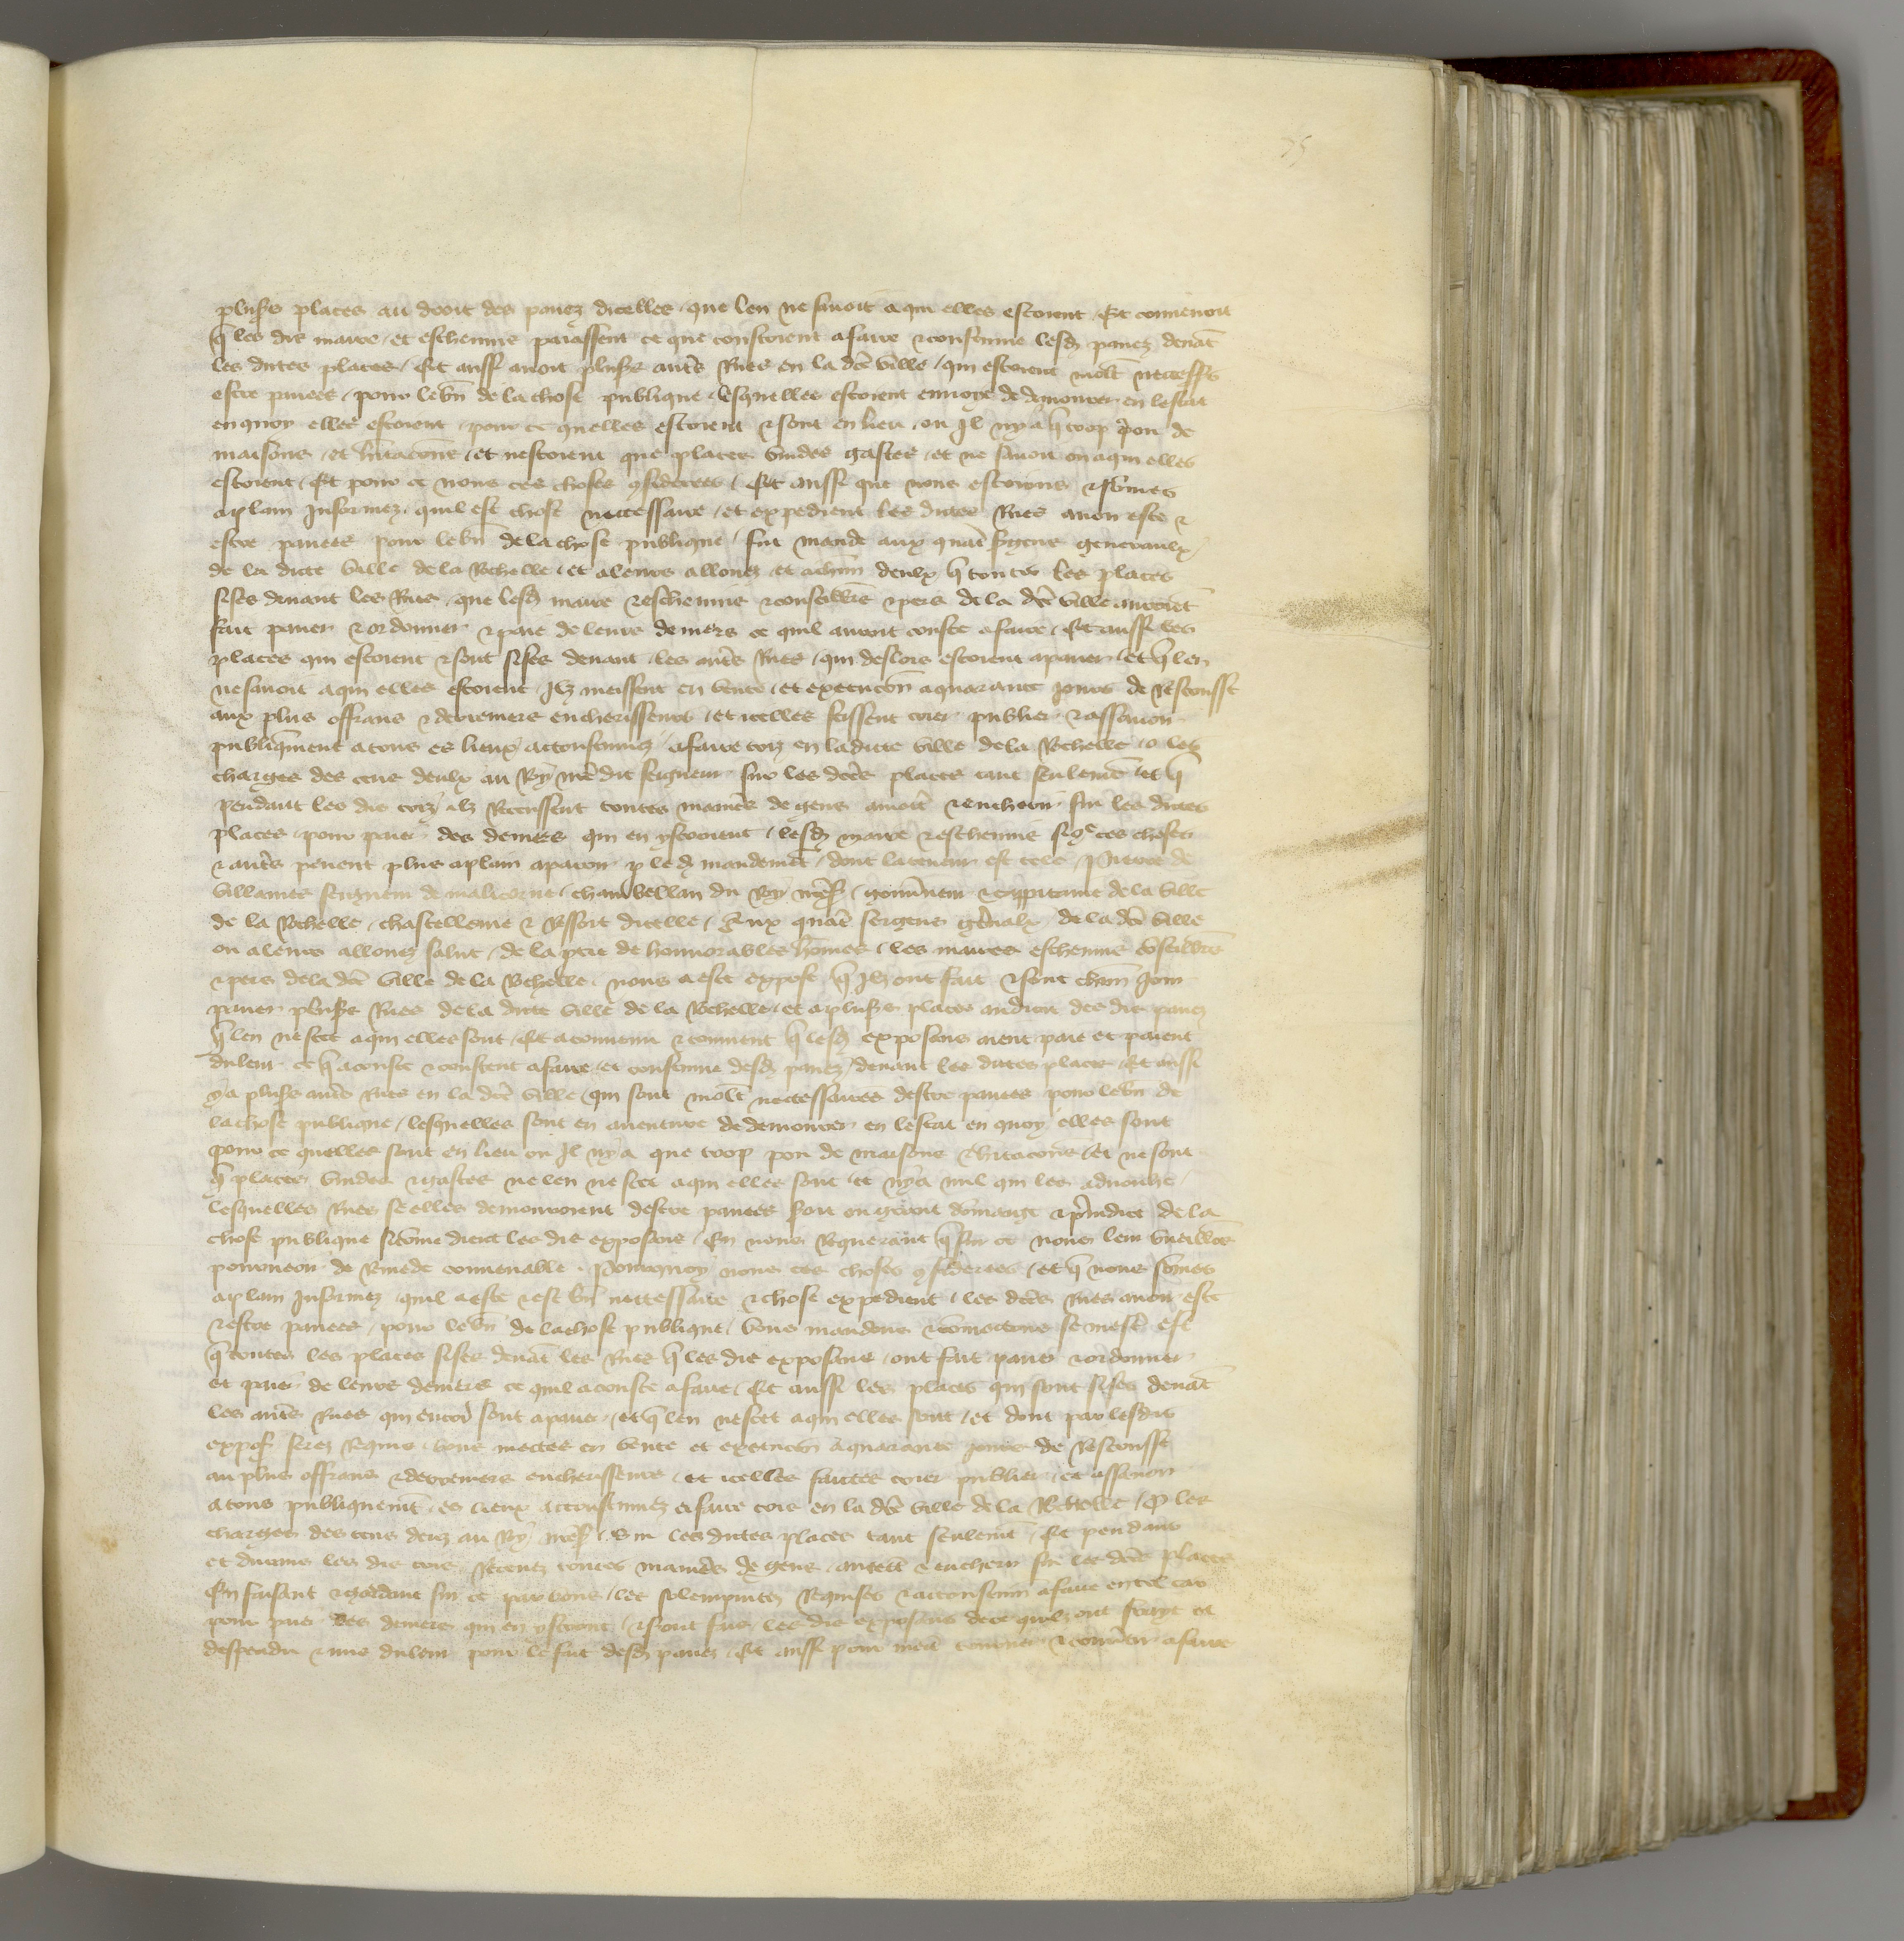 75
pluss places au droit des pavez dicelles que len ne savoit a qui elles estoient Et convenoit
q̄ les diz maire et eschevins paiassent ce que coustoient a faire & construire lesd pavez devāt
les dictes places Et aussi avoit pluss aut̄s Rues en la dc̄e ville qui estoient molt necess̄s
estre pavees pour le bn̄ de la chose publique lesquelles estoient de demourer en lestat
en quoy elles estoient pour ce quelles estoient & sont en lieu ou Il ny a q̄ trop pou de
maisons et h̄itacōns et nestoient que places vuides gastes et ne savoit on a qui elles
estoient Et pour ce nous ces choses 9siderees Et aussi que nous estoions & sōmes
a plain Informez quil est chose necessaire et expedient les dictes Rues avoir este &
estre pavees pour le bn̄ de la chose publique fut mande aux quat̄ s̄gens generaulx
de la dicte ville de la Rochelle et a leurs allouez et a chūn deulx q̄ toutes les places
sises devant les Rues que lesd maire & eschevins & conseill̄rs & pers de la dc̄e ville avoiēt
fait paver & ordonner & paie de leurs deniers ce quil avoit couste a faire Et aussi les
places qui estoient & sont sises devant les aut̄s Rues qui deslors estoient a paver et q̄ len
ne savoit a qui elles estoient Ilz meissent en vente et execucōn a quarante jours de Rescousse
aux plus offrans & derreniers encherisseurs et icelles feissent crier publier & assavoir
publiq̄ment a tous es lieux acoustumez a faire criz en la dicte ville de la Rochelle o les
charges des cens deulx au Roy mō dit seigneur sur les dc̄es places tant seulemēt et q̄
pendant les diz criz ilz Receussent toutes manie͂s de gens a & encherir sur les dictes
places pour paier des deniers qui en ystroient lesd maire & eschevins si 9e ces choses
& aut̄s pevent plus a plain aparoir p le d mandemēt dont la teneur est tele Pierre de
Villaines seigneur de malicorne chambellan du Roy nr̄e s gouv̄neur & cappitaine de la ville
de la Rochelle chastellenie & Ressort dicelle Aux quat̄ sergens gn̄ralx de la dc̄e ville
ou a leurs allouez salut de la ptie de honnorables hōmes les maires eschevins & cōseill̄rs
& pers de la dc̄e ville de la Rochelle nous a este expose q̄ Ilz ont fait & font chūn Jour
paver pluss Rues de la dicte ville de la Rochelle et a pluss places au droit des diz pavez
q̄ len ne scet a qui elles sont Et a convenu & convient q̄ lesd exposans aient paie et paient
du leur ce q̄ a couste & coustent a faire et construire desd pavez devant les dictes places Et aussi
y a pluss aut̄s Rues en la dc̄e ville qui sont molt necessaires destre pavees pour le bn̄ de
la chose publique lesquelles sont en aventure de demourer en lestat en quoy elles sont
pour ce quelles sont en lieu ou Il ny a que trop pou de maisons & h̄itacōns et ne sont
q̄ places vuides & gastes ne len ne scet a qui elles sont et ny a nul qui les advouhe
lesquelles Rues se elles demouroient destre pavees seroit ou grant dōmage & p̄iudice de la
chose publique si cōme dient les diz exposans En nous Requerant q̄ sur ce nous leur vueillōs
pourveoir de Remede convenable Pourquoy nous ces choses 9siderees et q̄ nous sōmes
a plain Informez quil a este & est bn̄ necessaire & chose expedient les dc̄es Rues avoir este
& estre pavees pour le bn̄ de la chose publique vous mandons & cōmectons se mest̄ est
q̄ toutes les places sises devāt les Rues q̄ les diz exposans ont fait paver & ordonner
et paie de leurs deniers ce quil a couste a faire Et aussi les places qui sont sises devāt
les aut̄s Rues qui encor̄ sont a paver et q̄ len ne scet a qui elles sont et dont par lesdiz
expos̄ serez Requis vous mectes en vente et execucōn a quarante jours de Rescousse
au plus offrans & derreniers encherisseurs et icelles faictes crier publier et assavoir
a tous publiquemt̄ es lieux acoustumez a faire criz en la dc̄e ville de la Rochelle O les
charges des cens deuz au Roy nr̄e s sur les dictes places tant seulemt̄ Et pendans
et durans les diz criz Recevez toutes manie͂s de gens & encherir sur les dc̄es places
En faisant & gardant sur ce par vous les solempnitez Requises & acoustumees a faire en tel cas
pour paier des deniers qui en ystront & sont sus les diz exposans de ce quilz ont fraye et
despendu & mis du leur pour le fait desd pavez Et aussi pour tourner & cōv̄tir a faire